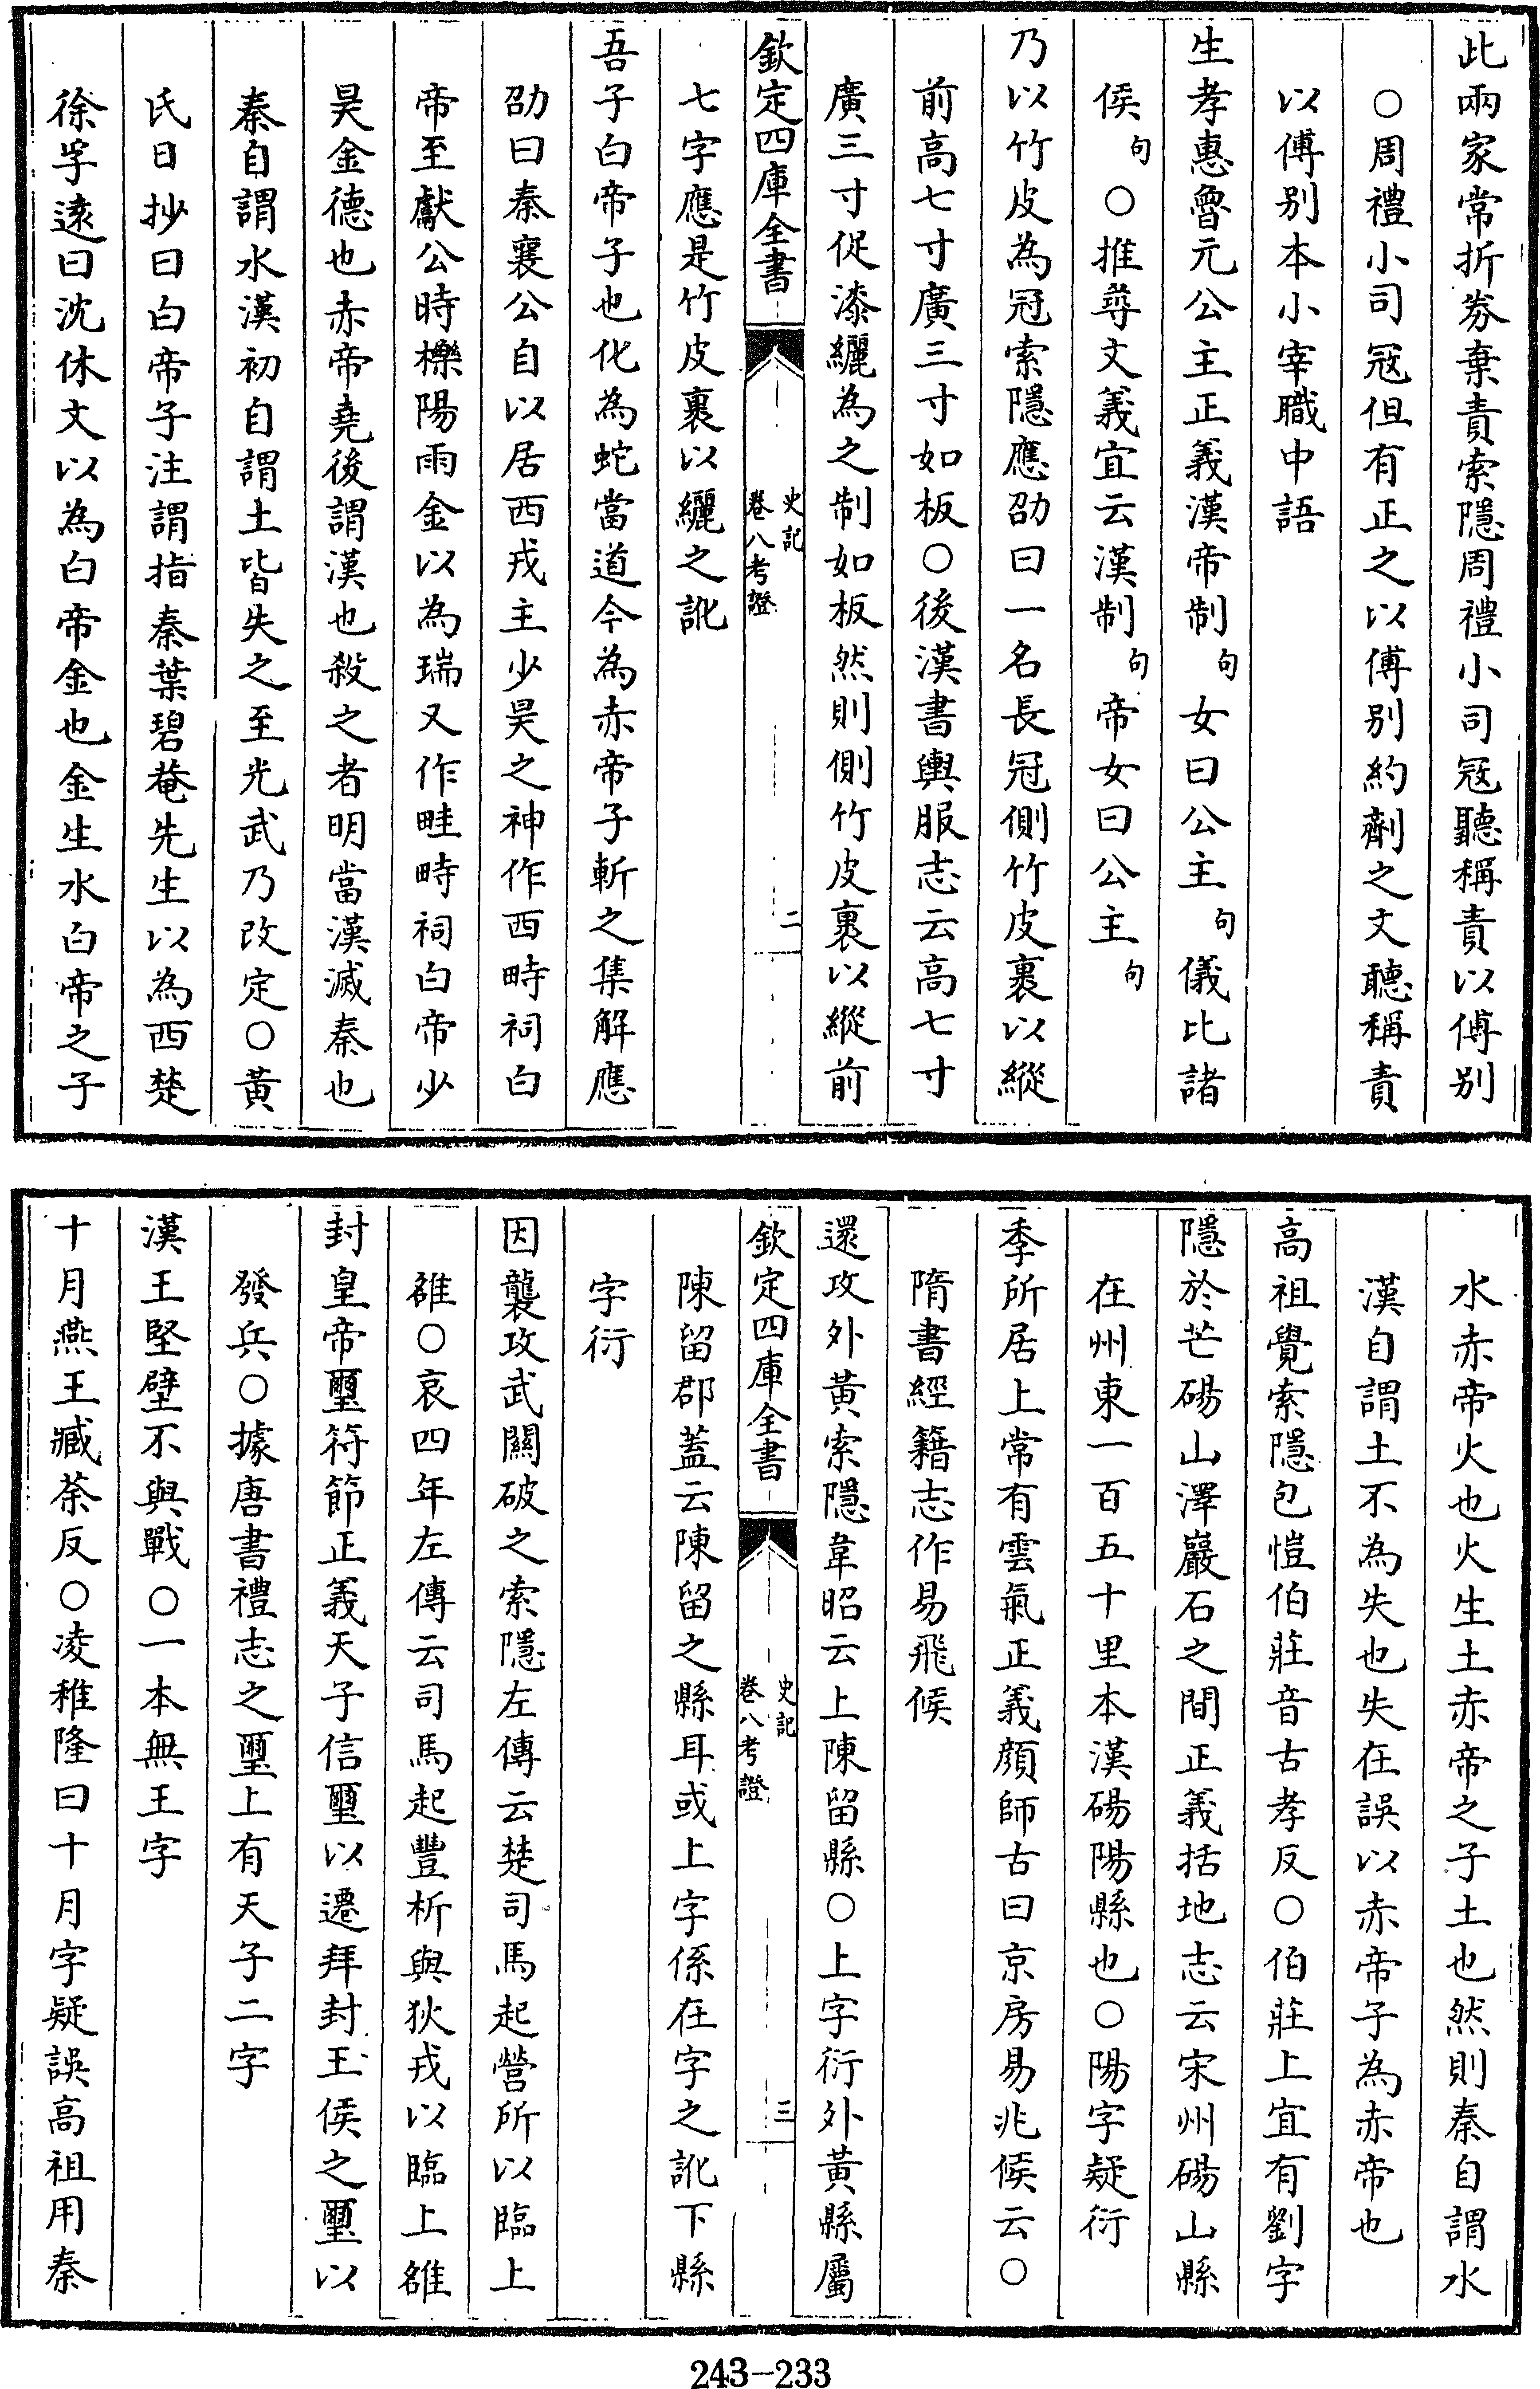 此兩家常折券棄責索隱周禮小司寇聽稱責以傅别
○周禮小司寇但有正之以傅别約劑之文聽稱責
以傅别本小宰職中語
生孝惠魯元公主正義漢帝制句女曰公主句儀比諸
侯句○推尋文義宜云漢制句帝女曰公主句
乃以竹皮為冠索隱應劭曰一名長冠側竹皮裹以縱
前高七寸廣三寸如板○後漢書輿服志云高七寸
廣三寸促漆纚為之制如板然則側竹皮裹以縱前
欽定四庫全書
史記
卷八考證
二
七字應是竹皮裹以纚之訛
吾子白帝子也化為蛇當道今為赤帝子斬之集解應
劭曰秦襄公自以居西戎主少昊之神作西畤祠白
帝至獻公時櫟陽雨金以為瑞又作畦畤祠白帝少
昊金德也赤帝堯後謂漢也殺之者明當漢滅秦也
秦自謂水漢初自謂土皆失之至光武乃改定○黃
氏日抄曰白帝子注謂指秦葉碧菴先生以為西楚
徐孚遠曰沈休文以為白帝金也金生水白帝之子
水赤帝火也火生土赤帝之子土也然則秦自謂水
漢自謂土不為失也失在誤以赤帝子為赤帝也
高祖覺索隱包愷伯莊音古孝反○伯莊上宜有劉字
隱於芒碭山澤巖石之間正義括地志云宋州碭山縣
在州東一百五十里本漢碭陽縣也○陽字疑衍
季所居上常有雲氣正義顔師古曰京房易兆候云○
隋書經籍志作易飛候
還攻外黃索隱韋昭云上陳留縣○上字衍外黃縣屬
欽定四庫全書
史記
卷八考證
三
陳留郡蓋云陳留之縣耳或上字係在字之訛下縣
字衍
因襲攻武關破之索隱左傳云楚司馬起營所以臨上
雒○哀四年左傳云司馬起豐析與狄戎以臨上雒
封皇帝璽符節正義天子信璽以遷拜封王侯之璽以
發兵○據唐書禮志之璽上有天子二字
漢王堅壁不與戰○一本無王字
十月燕王臧荼反○凌稚隆曰十月字疑誤高祖用秦
243-233